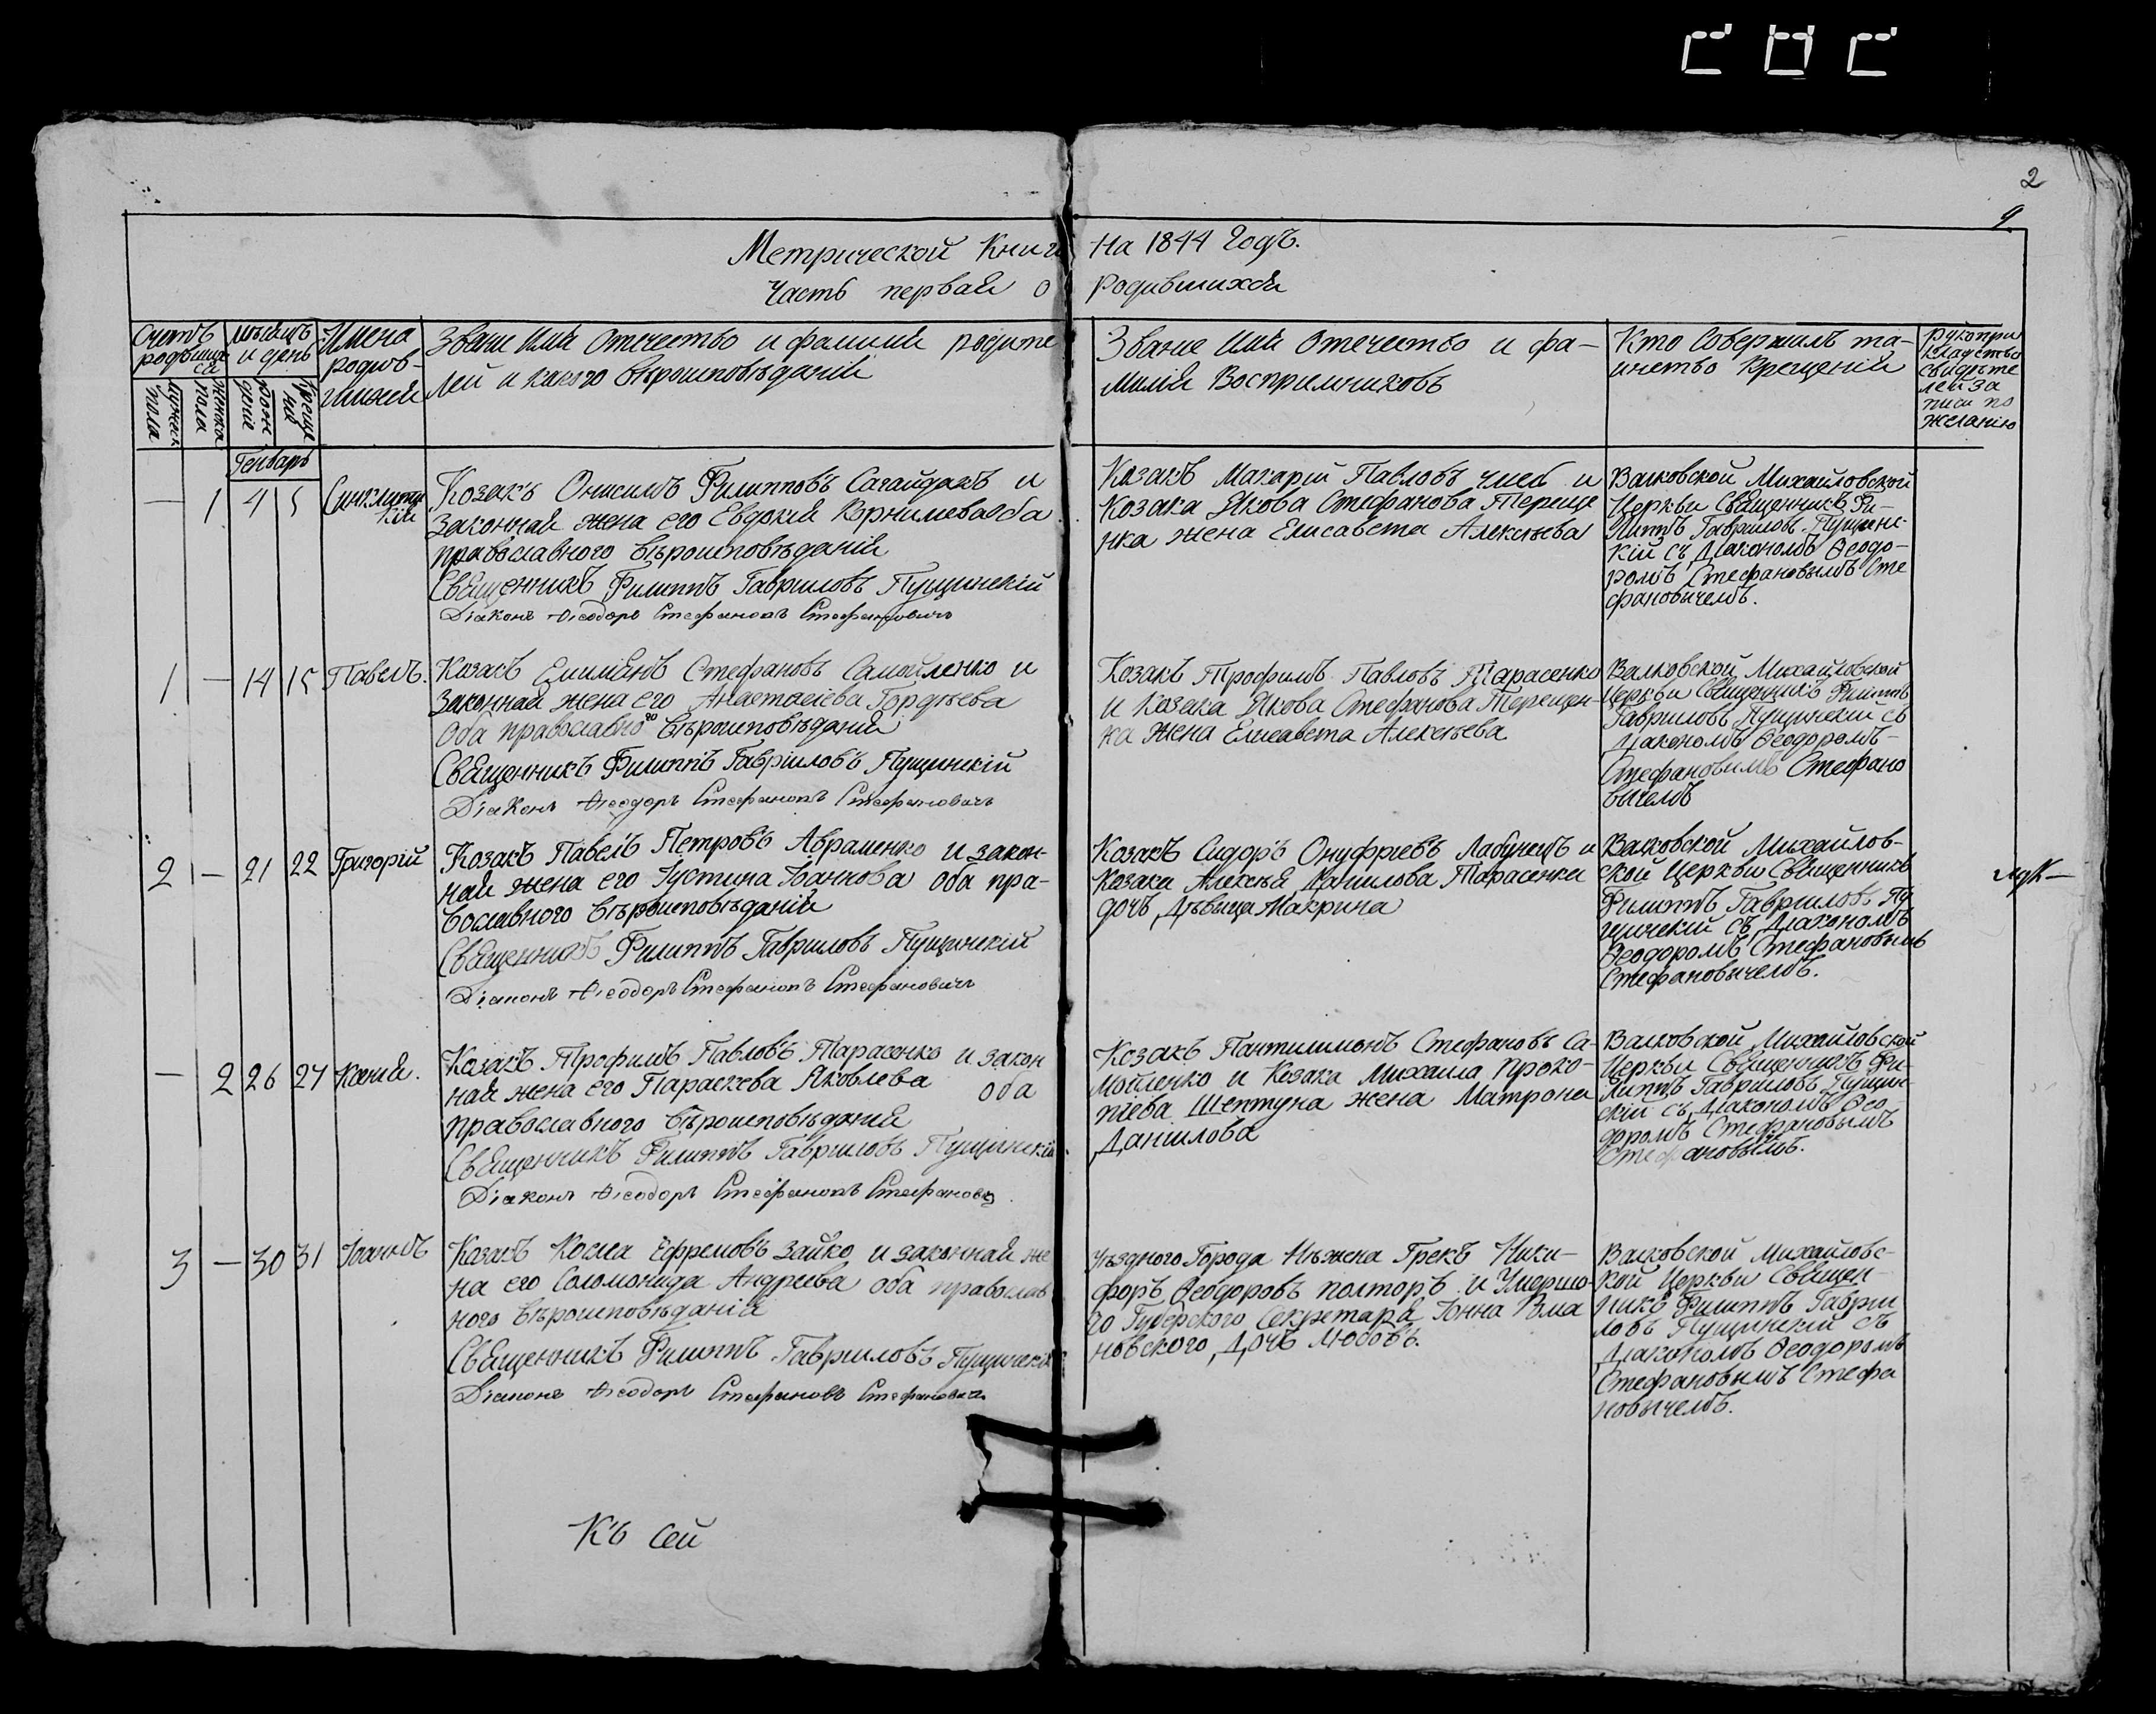 2
9
Метрической Книги На 1844 Годъ.
Часть первая о Родившихся
Счетъ родившихся
мѣсяцъ и день
Имена родившихся
Званіе Имя Отечество и фамилія родителей и какого вѣроисповѣданія
Званіе Имя Отечество и фамилія Восприемниковъ
Кто Совершилъ таинство Крещенія
Рукоприкладство свидѣтелей записи по желанію
Мужска пола
Женска пола
рожденіе
крещеніе
Генварь
— 1 4 5 Синклитикія
Козакъ Онисимъ Филипповъ Сагайдакъ и
законная жена его Евдокія Корнилева оба
православного вѣроисповѣданія
Священникъ Филиппъ Гавриловъ Пущинскій
Діаконъ Ѳеодоръ Стефановъ Стефановичъ
Козакъ Макарій Павловъ и
Козака Якова Стефанова Тереще
нка жена Елисавета Алексѣева
Валковской Михайловской
Церкви Священникъ Фи-
липпъ Гавриловъ Пущинс-
кій съ Діакономъ Ѳеодо-
ромъ Стефановымъ Сте
фановичемъ.
1 — 14 15 Павелъ.
Козакъ Емиліянъ Стефановъ Самойленко и
законная жена его Анастасіева Гордѣева
Оба православного вѣроисповѣданія
Священникъ Филиппъ Гавріиловъ Пущинскій
Діаконъ Ѳеодоръ Стефановъ Стефановичъ
Козакъ Трофимъ Павловъ Тарасенко
и Козака Якова Стефанова Терещен-
ка жена Елисавета Алексѣева
Валковской Михайловской
Церкви Священникъ Филиппъ
Гавриловъ Пущинскій съ
Діакономъ Ѳеодоромъ
Стефановымъ Стефано
вичемъ
2 — 21 22 Григорій
Козакъ Павелъ Петровъ Авраменко и закон-
ная жена его Іустина Іванкова оба пра-
вославного вѣроисповѣданія
Священникъ Филиппъ Гавриловъ Пущинскій
Діаконъ Ѳеодоръ Стефановъ Стефановичъ
Козакъ Сидоръ Онуфріевъ Лабунецъ и
Козака Алексѣя Данилова Тарасенка
дочь Дѣвица Макрина
Валковской Михайлов-
ской Церкви Священникъ
Филиппъ Гавриловъ Пу
щинскій съ Діакономъ
Ѳеодоромъ Стефановымъ
Стефановичемъ.
— 2 26 27 Ксенія.
Козакъ Трофимъ Павловъ Тарасенко и закон
ная жена его Параскева Яковлева оба
православного вѣроисповѣданія
Священникъ Филиппъ Гавриловъ Пущинскій
Діаконъ Ѳеодоръ Стефановъ Стефанович
Козакъ Пантилимонъ Стефановъ Са-
мойленко и Козака Михаила Проко-
піева Шептуна жена Матрона
Даніилова
Валковской Михайловской
Церкви Священникъ Фи-
липпъ Гавриловъ Пущин-
скій съ Діакономъ Ѳео-
доромъ Стефановымъ
Стефановымъ.
3 — 30 31 Іоаннъ
Козакъ Косма Ефремовъ Зайко и законная же
на его Соломонида Андреева оба православ
ного вѣроисповѣданія
Священникъ Филиппъ Гавриловъ Пущинскій
Діаконъ Ѳеодоръ Стефановъ Стефановичъ
Уѣздного Города Нѣжена Грекъ Ники-
форъ Ѳеодоровъ и Умершо-
го Губерского Секретаря
новского Дочь Любовь.
Валковской Михайловс-
кой Церкви Священ-
никъ Филиппъ Гаври
ловъ Пущинскій съ
Діакономъ Ѳеодоромъ
Стефановымъ Стефа
новичемъ.
Къ Сей